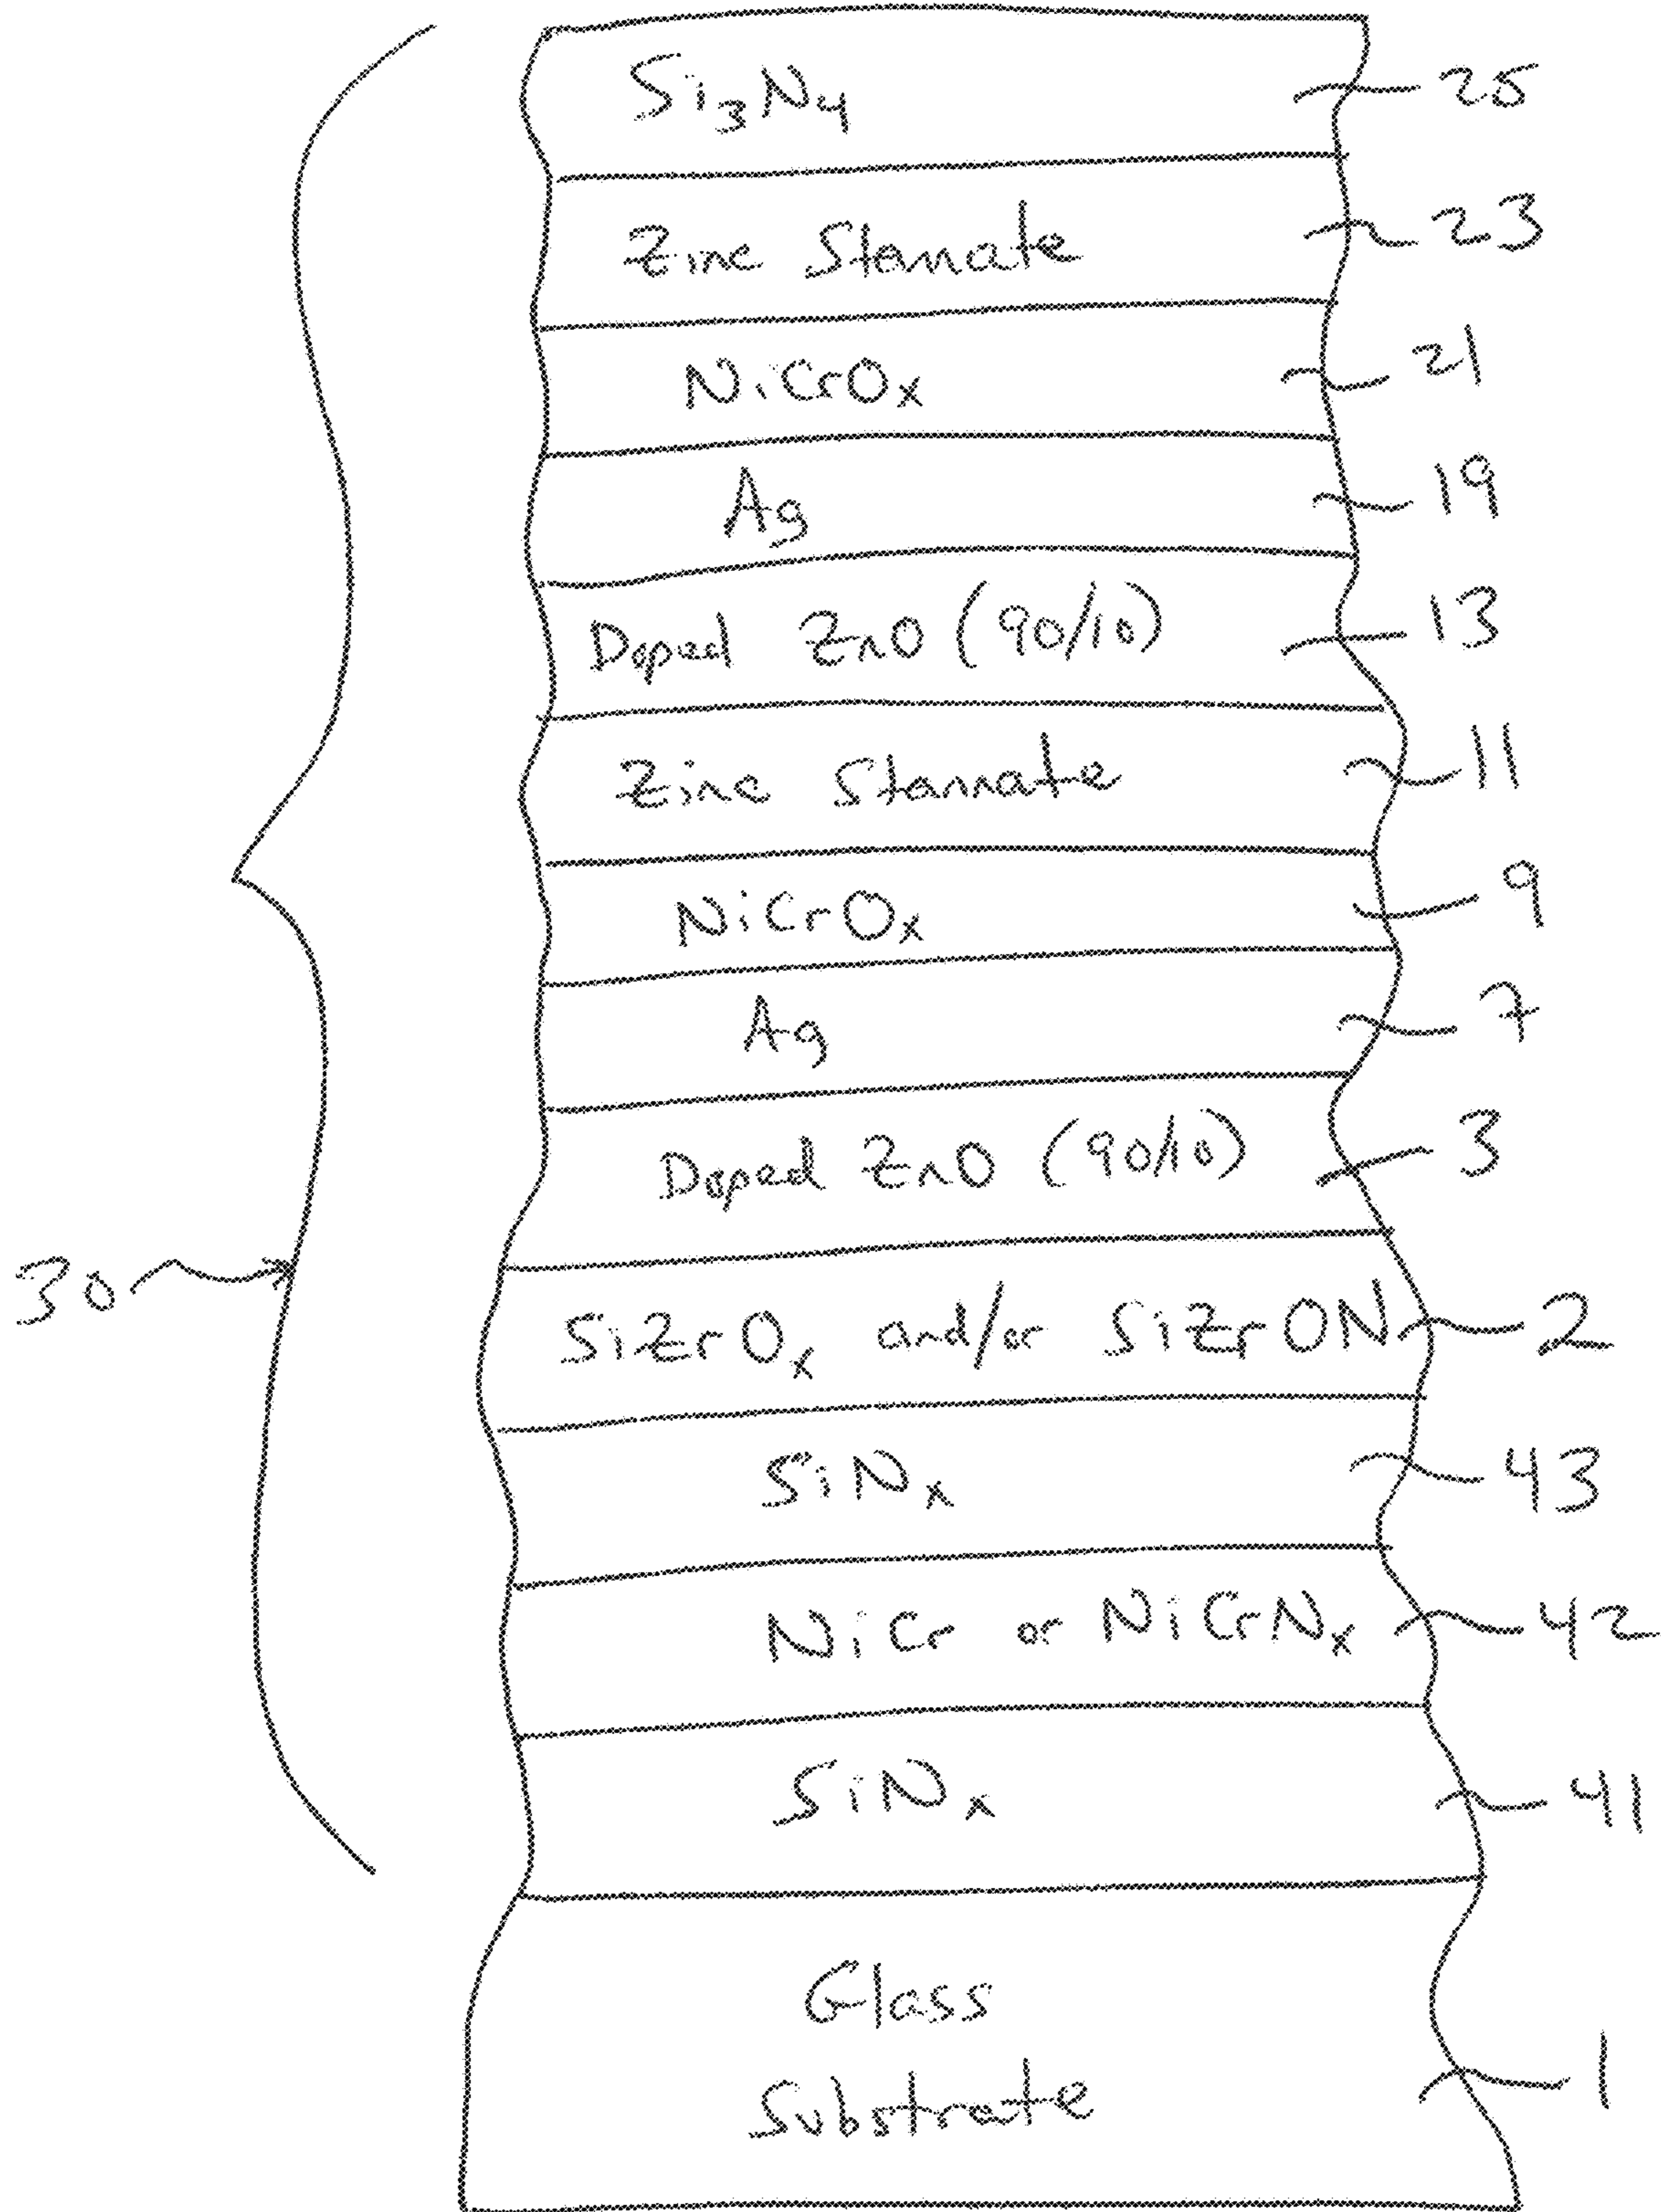 Si₃N₄ 25
Zinc Stannate 23
NiCrOₓ 21
Ag 19
Doped ZnO (90/10) 13
Zinc Stannate 11
NiCrOₓ 9
Ag 7
Doped ZnO (90/10) 3
30
SiZrOₓ and/or SiZrON 2
SiNₓ 43
NiCr or NiCrNₓ 42
SiNₓ 41
Glass
Substrate 1